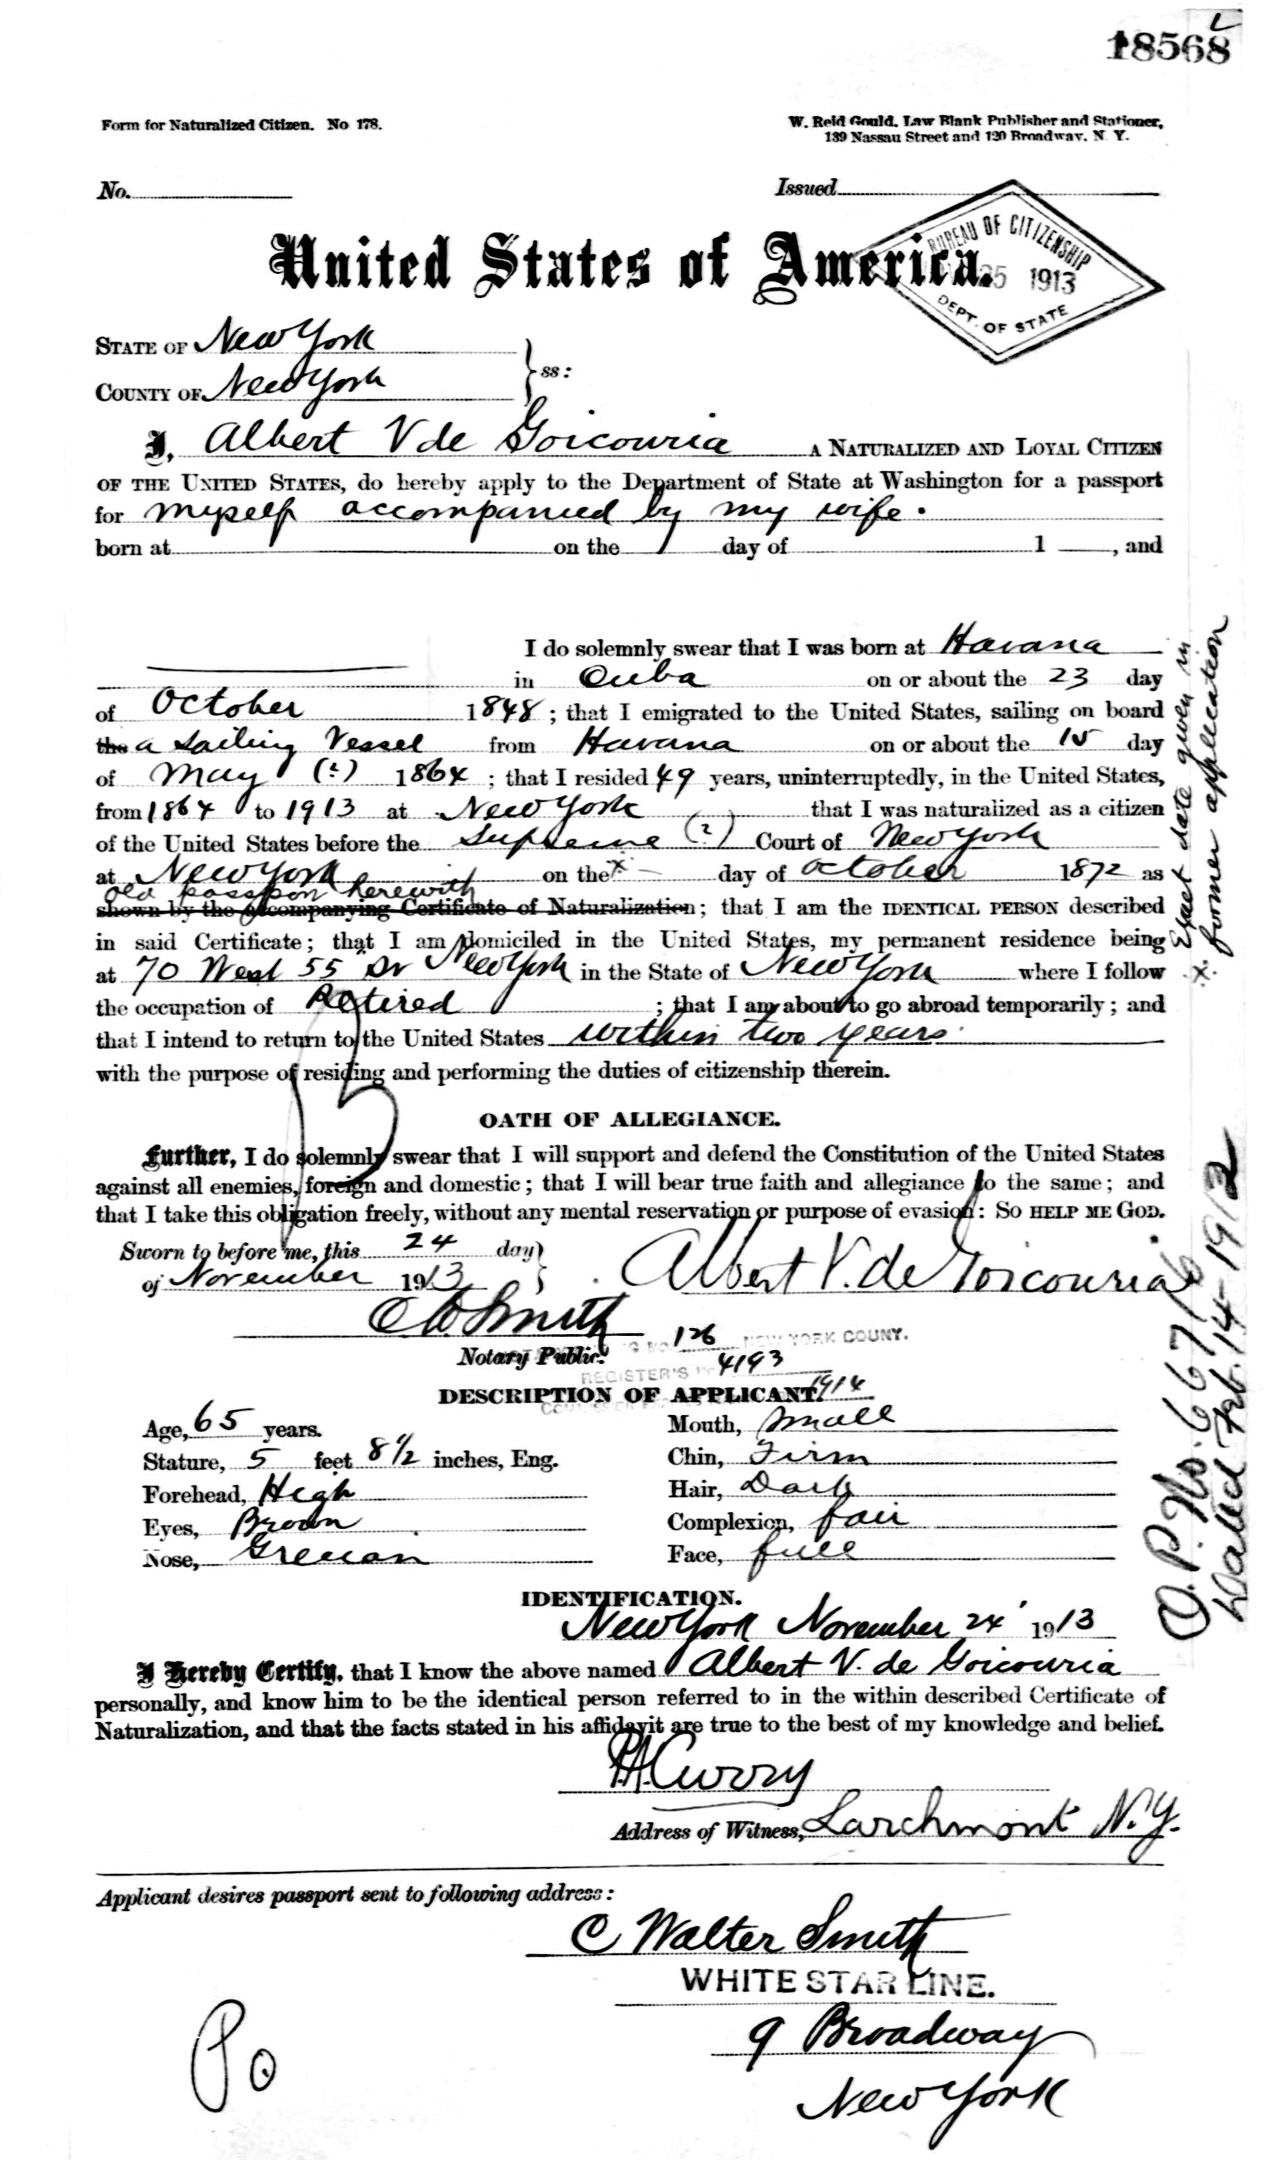 18568
Form for Naturalized Citizen. No 178.
W. Reid Gould, Law Blank Publisher and Stationer,
139 Nassau Street and 120 Broadway, N. Y.
No.
Issued
United States of America.
BUREAU OF CITIZENSHIP
25 1913
DEPT. OF STATE
STATE OF New York
COUNTY OF New York
ss:
I, Albert V de Goicouria A NATURALIZED AND LOYAL CITIZEN
OF THE UNITED STATES, do hereby apply to the Department of State at Washington for a passport
for myself accompanied by my wife.
born at on the day of 1 , and
I do solemnly swear that I was born at Havana
in Cuba on or about the 23 day
of October 1848; that I emigrated to the United States, sailing on board
the a Sailing Vessel from Havana on or about the 15 day
of May (?) 1864; that I resided 49 years, uninterruptedly, in the United States,
from 1864 to 1913 at New York that I was naturalized as a citizen
of the United States before the Supreme (?) Court of New York
at New York on the x - day of October 1872 as
old passport herewith
shown by the accompanying Certificate of Naturalization; that I am the IDENTICAL PERSON described
in said Certificate; that I am domiciled in the United States, my permanent residence being
at 70 West 55" St New York in the State of New York where I follow
the occupation of Retired; that I am about to go abroad temporarily; and
that I intend to return to the United States within two years
with the purpose of residing and performing the duties of citizenship therein.
x Exact date given in
former application
OATH OF ALLEGIANCE.
Further, I do solemnly swear that I will support and defend the Constitution of the United States
against all enemies, foreign and domestic; that I will bear true faith and allegiance to the same; and
that I take this obligation freely, without any mental reservation or purpose of evasion: SO HELP ME GOD.
Sworn to before me, this 24 day
of November 1913
Albert V. de Goicouria
C W Smith
Notary Public.
126 NEW YORK COUNY.
REGISTER'S NO 4193
1914
O.P. No. 6671/6
Dated Feb. 14-1912
DESCRIPTION OF APPLICANT.
Age, 65 years.
Mouth, Small
Stature, 5 feet 8½ inches, Eng.
Chin, Firm
Forehead, High
Hair, Dark
Eyes, Brown
Complexion, fair
Nose, Grecian
Face, full
IDENTIFICATION.
New York November 24 1913
I Hereby Certify, that I know the above named Albert V. de Goicouria
personally, and know him to be the identical person referred to in the within described Certificate of
Naturalization, and that the facts stated in his affidavit are true to the best of my knowledge and belief.
P.A. Curry
Address of Witness, Larchmont N.Y.
Applicant desires passport sent to following address:
C Walter Smith
WHITE STAR LINE.
9 Broadway
New York